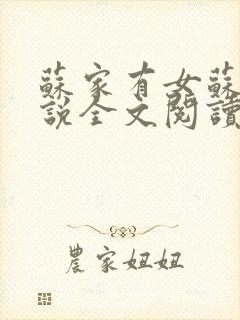 蘇家有女蘇
說全文閱讀
農家妞妞